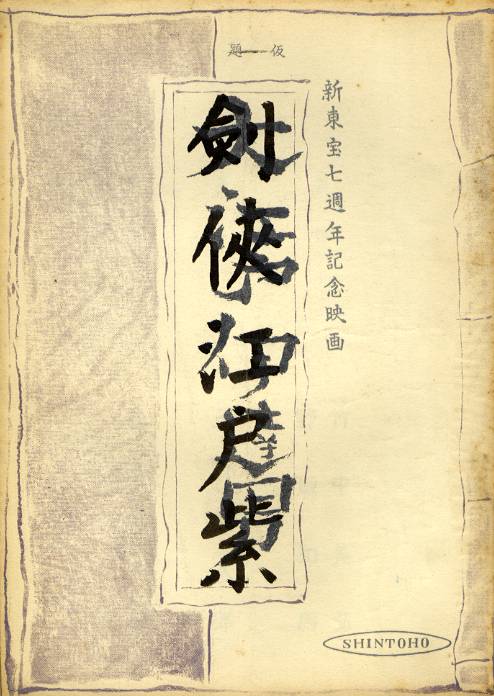 仮―題
新東宝七週年記念映画
剣俠江戸紫
SHINTOHO